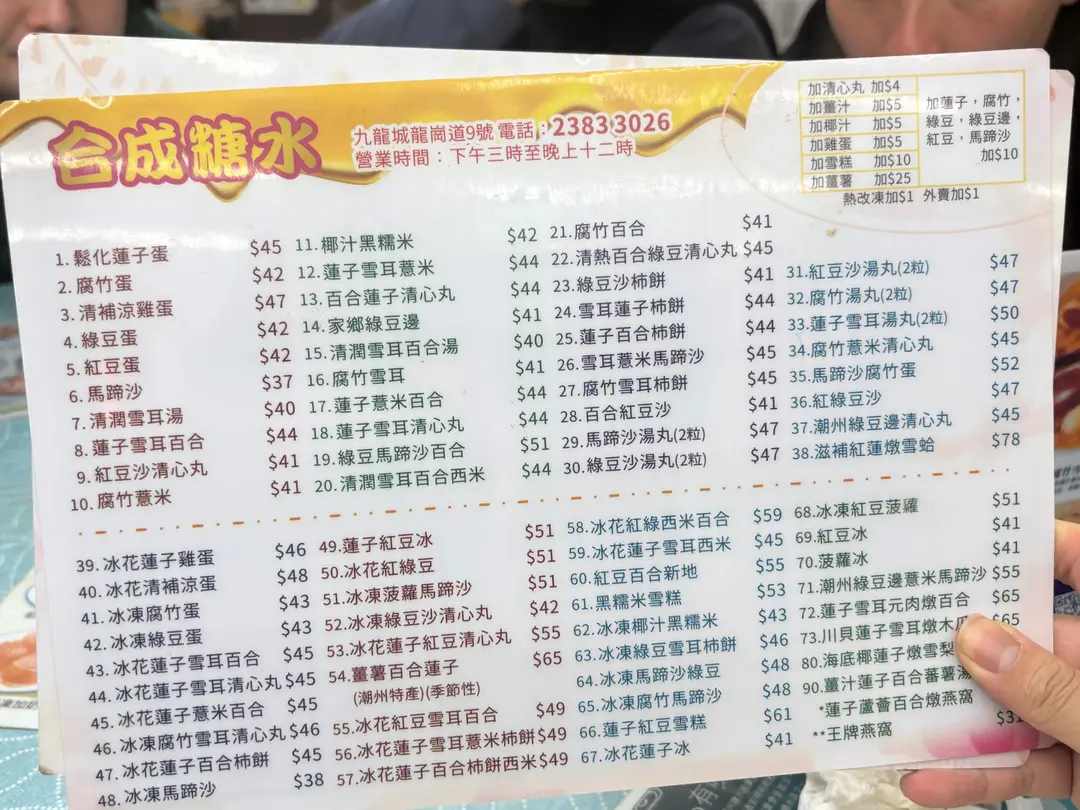 合成糖水
九龍城龍崗道9號 電話：2383 3026
營業時間：下午三時至晚上十二時
加清心丸 加$4
加薑汁 加$5
加椰汁 加$5
加雞蛋 加$5
加雪糕 加$10
加薑薯 加$25
加蓮子，腐竹，
綠豆，綠豆邊，
紅豆，馬蹄沙
加$10
熱改凍加$1 外賣加$1
1. 鬆化蓮子蛋 $45
2. 腐竹蛋 $42
3. 清補涼雞蛋 $47
4. 綠豆蛋 $42
5. 紅豆蛋 $42
6. 馬蹄沙 $37
7. 清潤雪耳湯 $40
8. 蓮子雪耳百合 $44
9. 紅豆沙清心丸 $41
10. 腐竹薏米 $41
11. 椰汁黑糯米 $42
12. 蓮子雪耳薏米 $44
13. 百合蓮子清心丸 $44
14. 家鄉綠豆邊 $41
15. 清潤雪耳百合湯 $40
16. 腐竹雪耳 $41
17. 蓮子薏米百合 $44
18. 蓮子雪耳清心丸 $44
19. 綠豆馬蹄沙百合 $51
20. 清潤雪耳百合西米 $44
21. 腐竹百合 $41
22. 清熱百合綠豆清心丸 $45
23. 綠豆沙柿餅 $41
24. 雪耳蓮子柿餅 $44
25. 蓮子百合柿餅 $44
26. 雪耳薏米馬蹄沙 $45
27. 腐竹雪耳柿餅 $45
28. 百合紅豆沙 $41
29. 馬蹄沙湯丸(2粒) $47
30. 綠豆沙湯丸(2粒) $47
31. 紅豆沙湯丸(2粒) $47
32. 腐竹湯丸(2粒) $47
33. 蓮子雪耳湯丸(2粒) $50
34. 腐竹薏米清心丸 $45
35. 馬蹄沙腐竹蛋 $52
36. 紅綠豆沙 $47
37. 潮州綠豆邊清心丸 $45
38. 滋補紅蓮燉雪蛤 $78
39. 冰花蓮子雞蛋 $46
40. 冰花清補涼蛋 $48
41. 冰凍腐竹蛋 $43
42. 冰凍綠豆蛋 $43
43. 冰花蓮子雪耳百合 $45
44. 冰花蓮子雪耳清心丸 $45
45. 冰花蓮子薏米百合 $45
46. 冰凍腐竹雪耳清心丸 $46
47. 冰花蓮子百合柿餅 $45
48. 冰凍馬蹄沙 $38
49. 蓮子紅豆冰 $51
50. 冰花紅綠豆 $51
51. 冰凍菠蘿馬蹄沙 $51
52. 冰凍綠豆沙清心丸 $42
53. 冰花蓮子紅豆清心丸 $55
54. 薑薯百合蓮子 $65
(潮州特產)(季節性)
55. 冰花紅豆雪耳百合 $49
56. 冰花蓮子雪耳薏米柿餅 $49
57. 冰花蓮子百合柿餅西米 $49
58. 冰花紅綠西米百合 $59
59. 冰花蓮子雪耳西米 $45
60. 紅豆百合新地 $55
61. 黑糯米雪糕 $53
62. 冰凍椰汁黑糯米 $43
63. 冰凍綠豆雪耳柿餅 $46
64. 冰凍馬蹄沙綠豆 $48
65. 冰凍腐竹馬蹄沙 $48
66. 蓮子紅豆雪糕 $61
67. 冰花蓮子冰 $41
68. 冰凍紅豆菠蘿 $51
69. 紅豆冰 $41
70. 菠蘿冰 $41
71. 潮州綠豆邊薏米馬蹄沙 $55
72. 蓮子雪耳元肉燉百合 $65
73. 川貝蓮子雪耳燉木瓜 $65
80. 海底椰蓮子燉雪梨
90. 薑汁蓮子百合蕃薯湯
*蓮子蘆薈百合燉燕窩
**王牌燕窩